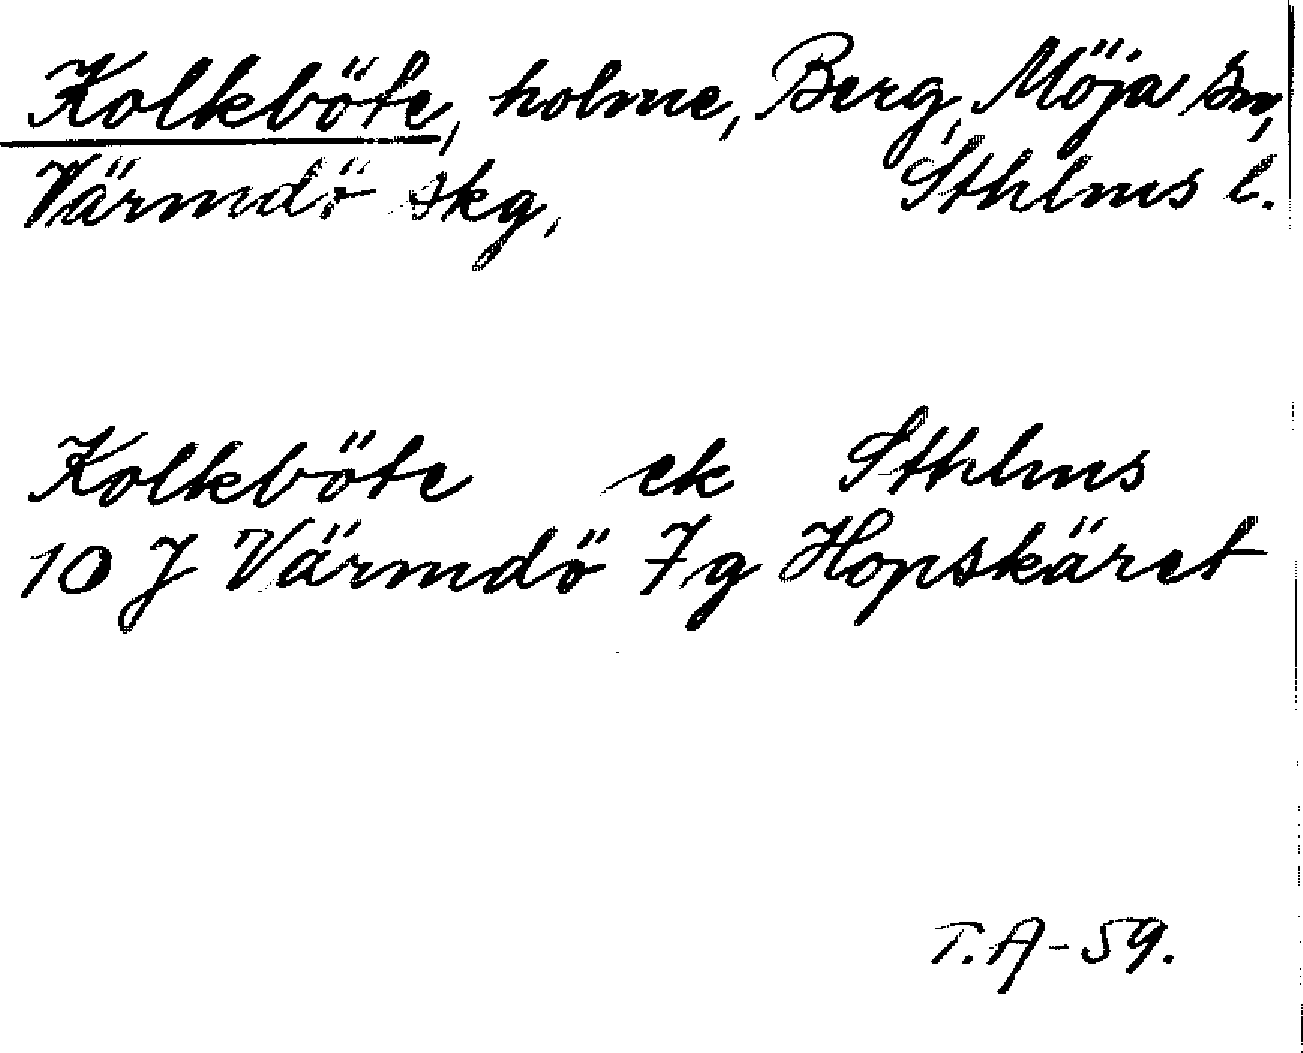 Kolkböte, holme, Berg, Möja sn,
Värmdö skg, Sthlms l.
Kolkböte ek Sthlms
10 J Värmdö 7g Hopskäret
T.A-59.